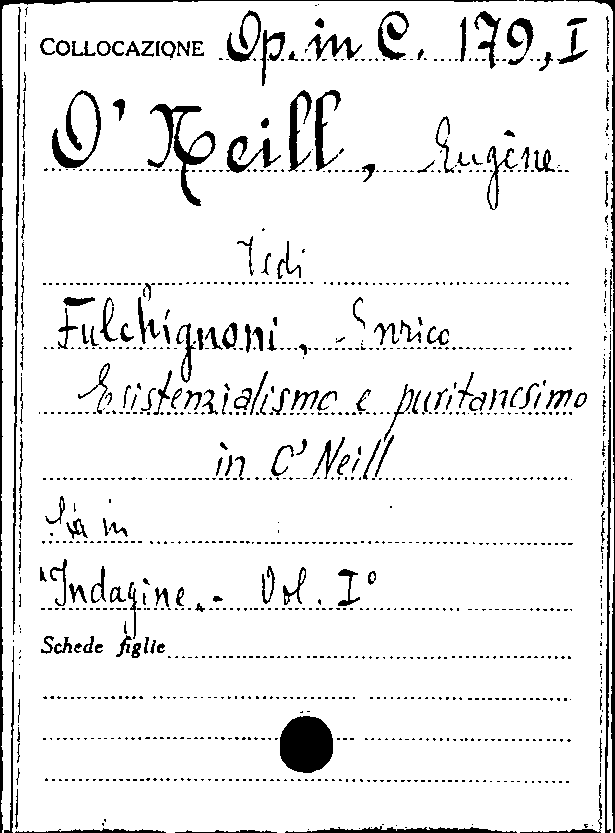 COLLOCAZIONE Op. in C. 179, I
O' Neill, Eugène
Vedi
Fulchignoni, Enrico
Esistenzialismo e puritanesimo
in O' Neill
Sta in
"Indagine„. - Vol. I°
Schede figlie